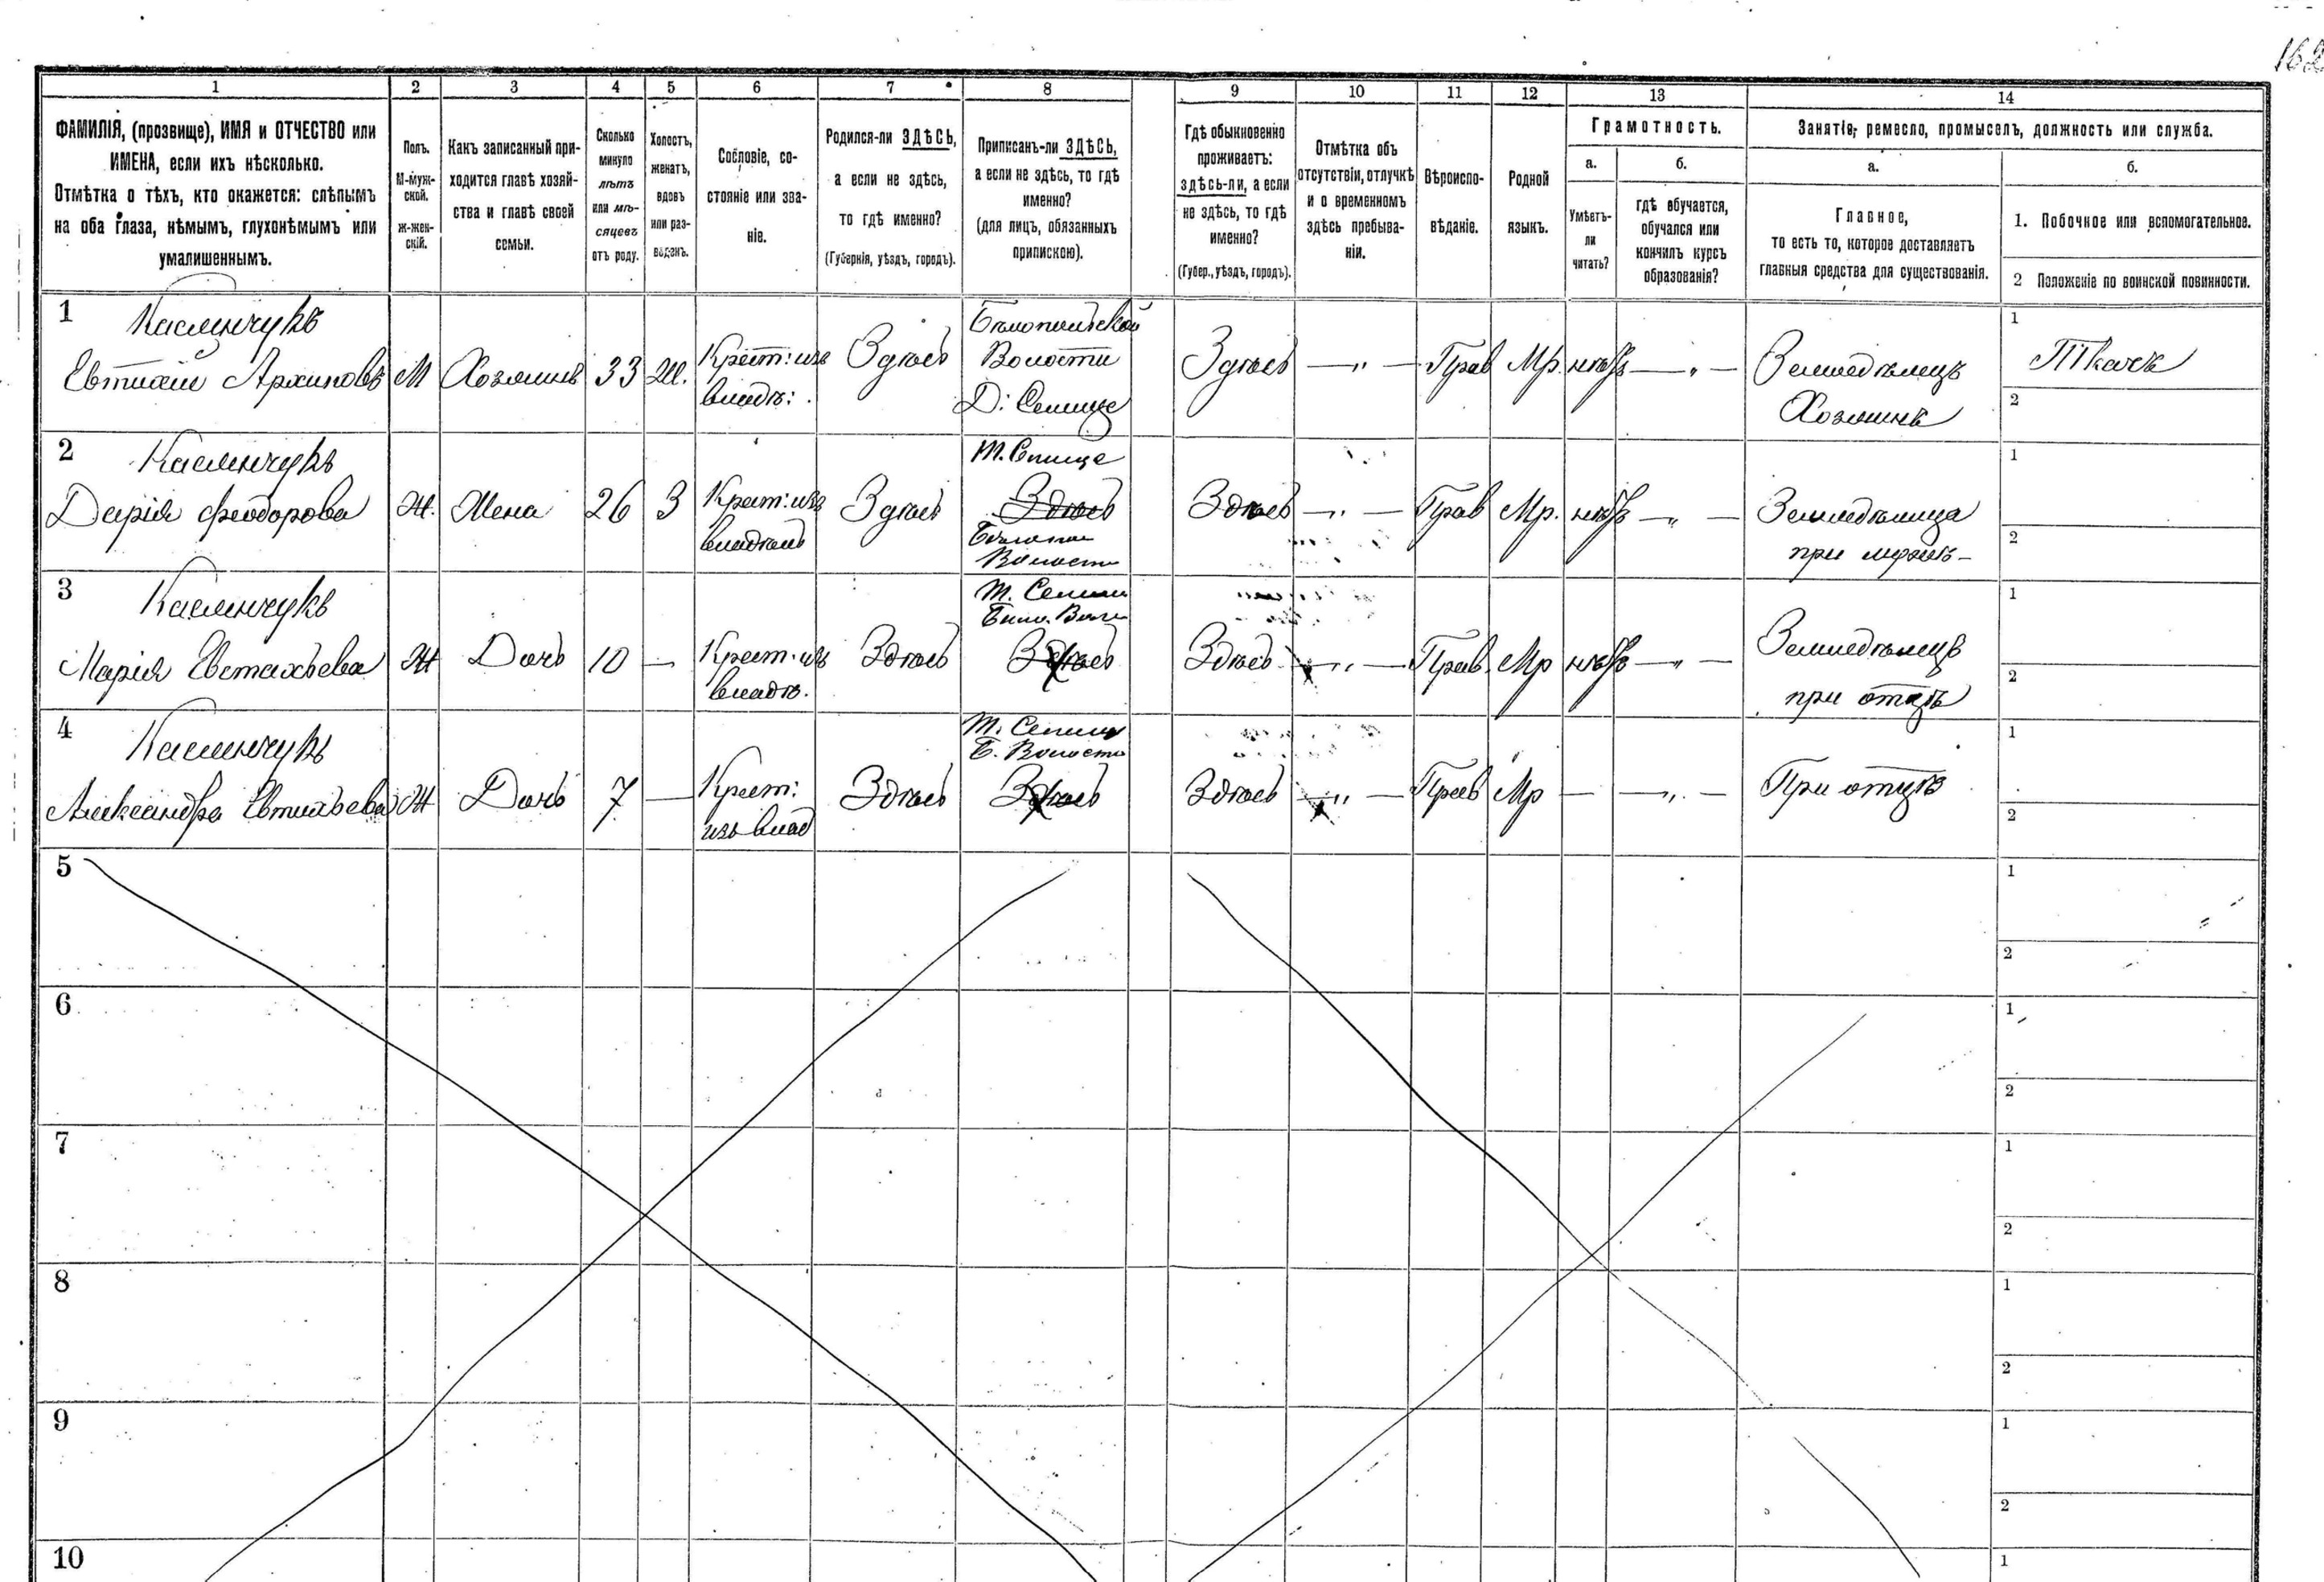 162
1 2 3 4 5 6 7 8 9 10 11 12 13 14
ФАМИЛІЯ, (прозвище), ИМЯ и ОТЧЕСТВО или
ИМЕНА, если ихъ нѣсколько.
Отмѣтка о тѣхъ, кто окажется: слѣпымъ
на оба глаза, нѣмымъ, глухонѣмымъ или
умалишеннымъ.
Полъ.
М-муж-
ской.
ж-жен-
скій.
Какъ записанный при-
ходится главѣ хозяй-
ства и главѣ своей
семьи.
Сколько
минуло
лѣтъ
или мѣ-
сяцевъ
отъ роду.
Холостъ,
женатъ,
вдовъ
или раз-
веденъ.
Сословіе, со-
стояніе или зва-
ніе.
Родился-ли ЗДѢСЬ,
а если не здѣсь,
то гдѣ именно?
(Губернія, уѣздъ, городъ).
Приписанъ-ли ЗДѢСЬ,
а если не здѣсь, то гдѣ
именно?
(для лицъ, обязанныхъ
припискою).
Гдѣ обыкновенно
проживаетъ:
здѣсь-ли, а если
не здѣсь, то гдѣ
именно?
(Губер., уѣздъ, городъ).
Отмѣтка объ
отсутствіи, отлучкѣ
и о временномъ
здѣсь пребыва-
ніи.
Вѣроиспо-
вѣданіе.
Родной
языкъ.
Грамотность.
а.
Умѣетъ-
ли
читать?
б.
гдѣ обучается,
обучался или
кончилъ курсъ
образованія?
Занятіе, ремесло, промыселъ, должность или служба.
а.
Главное,
то есть то, которое доставляетъ
главныя средства для существованія.
б.
1. Побочное или вспомогательное.
2 Положеніе по воинской повинности.
1
Евтихій Архиповъ
М
Хозяинъ
33
Крест: изъ
владѣ:
Здѣсь
Волости
Д: Селище
Здѣсь
— „ —
Прав
Мр.
нѣтъ
— „ —
Земледѣлецъ
Хозяинъ
1
Ткачъ
2
2
Дарія Феодорова
Ж.
Жена
26
З
Крест: изъ
владѣль
Здѣсь
Здѣсь
Волости
Здѣсь
— „ —
Прав
Мр.
нѣтъ
— „ —
Земледѣлица
при мужѣ —
1
2
3
Марія Евстахьева
Ж
Дочь
10
—
Крест: изъ
владѣ.
Здѣсь
Здѣсь
Здѣсь
— „ —
Прав.
Мр
нѣтъ
— „ —
Земледѣлецъ
при отцѣ
1
2
4
Александра Евтихьева
Ж
Дочь
7
—
Крест:
изъ влад
Здѣсь
Б. Волости
Здѣсь
Здѣсь
— „ —
Прав
Мр
—
— „ —
При отцѣ
1
2
5
1
2
6
1
2
7
1
2
8
1
2
9
1
2
10
1